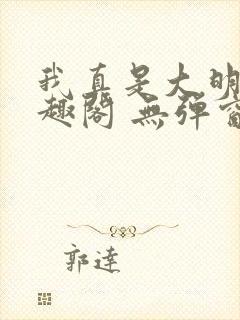 我真是大明
趣閣 無彈窗
郭達